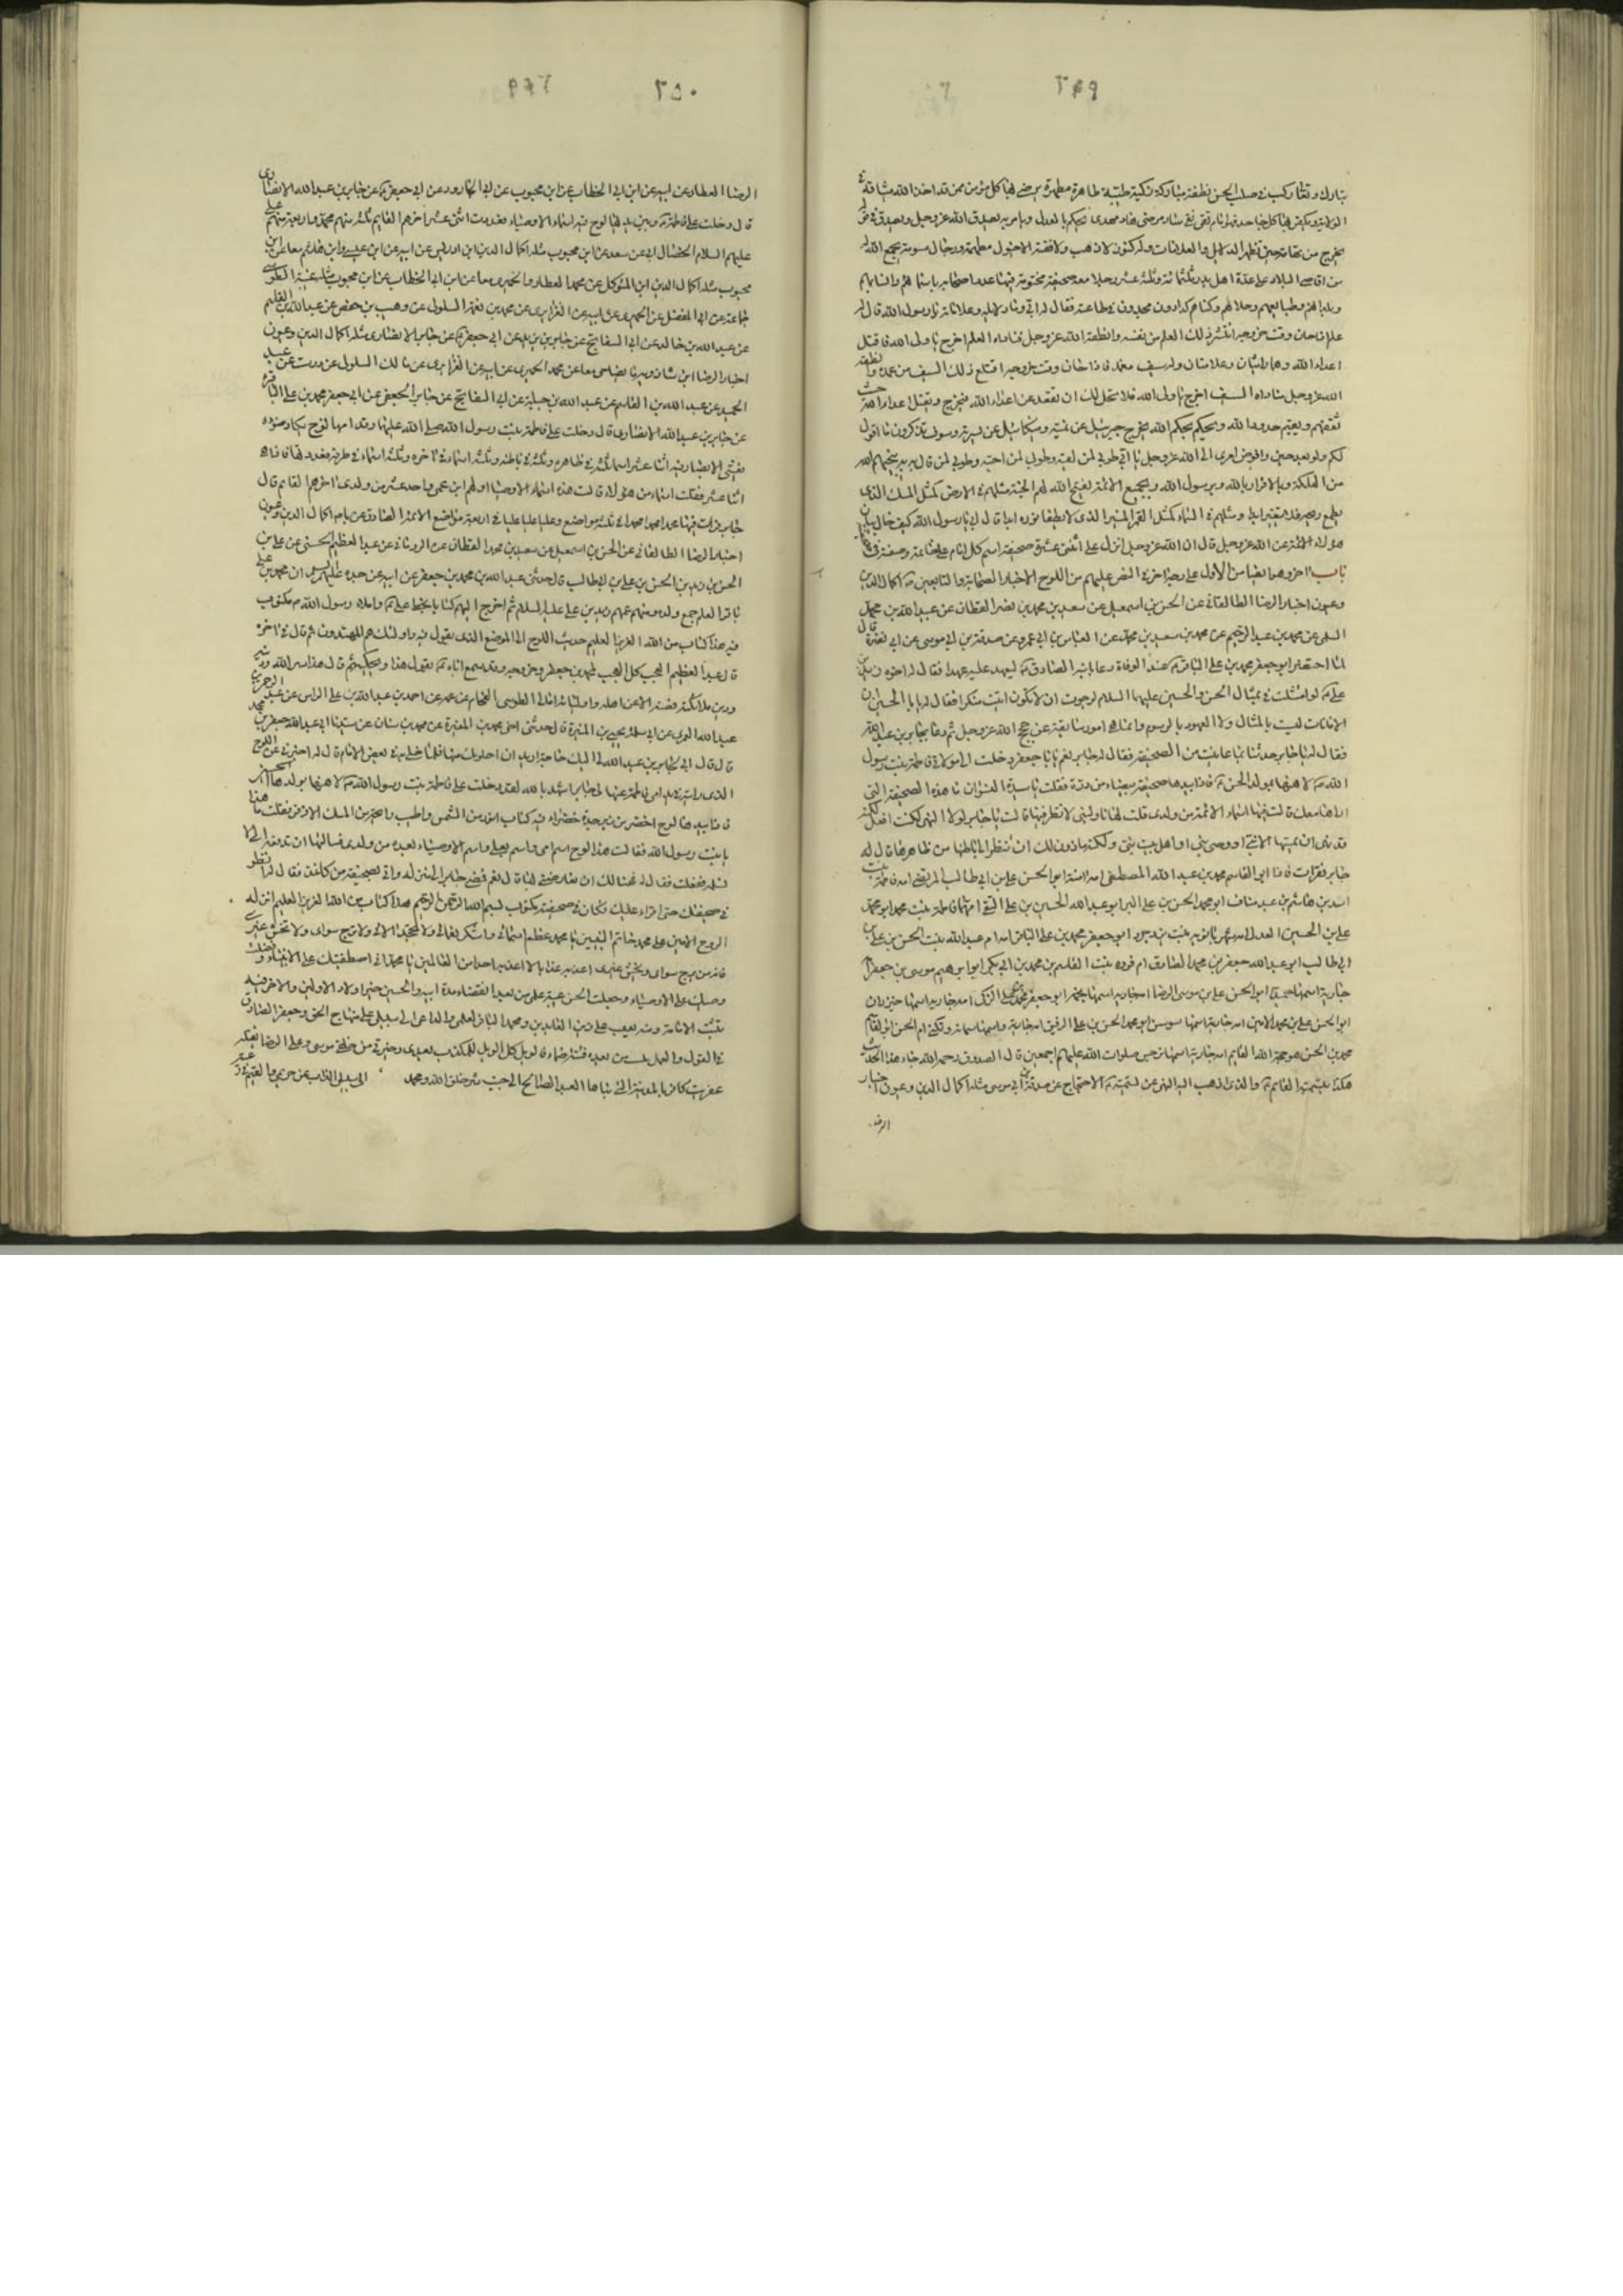 ٢٤٩
تبارك وتعالى ركب في صلب الحسن نطفة مباركة زكية طيبة طاهرة مطهرة يرضى بها كل مؤمن ممن قد اخذ الله ميثاقه
الولاية ويكفر بها كل جاحد فهو امام تقي نقي هاد مهدي يحكم بالعدل ويامر به يصدق الله عز وجل ويصدقه
يخرج من تهامة حين تظهر الدلايل والعلامات وله كنوز لا ذهب ولا فضة الا خيول مطهمة ورجال مسومة يجمع الله له
من اقاصي البلاد على عدة اهل بدر ثلثمائة وثلثة عشر رجلا معه صحيفة مختومة فيها عدد اصحابه باسمائهم وانسابهم
وبلدانهم وطبايعهم وحلاهم وكناهم كدادون مجدون في طاعته فقال له ابي وما دلايله وعلاماته يا رسول الله قال له
علم اذا حان وقت خروجه انتشر ذلك العلم من نفسه وانطقه الله عز وجل فناداه العلم اخرج يا ولي الله فاقتل
اعداء الله وهما رايتان وعلامتان وله سيف مغمد فاذا حان وقت خروجه اقتلع ذلك السيف من غمده وانطقه
الله عز وجل فناداه السيف اخرج يا ولي الله فلا يحل لك ان تقعد عن اعداء الله فيخرج ويقتل اعداء الله حيث
ثقفهم ويقيم حدود الله ويحكم بحكم الله يخرج جبرئيل عن يمينه وميكائيل عن يسرته وسوف تذكرون ما اقول
لكم ولو بعد حين وافوض امري الى الله عز وجل يا ابي طوبى لمن لقيه وطوبى لمن احبه وطوبى لمن قال به ينجيهم الله
من الهلكة وبالاقرار بالله وبرسول الله وبجميع الائمة يفتح الله لهم الجنة مثلهم في الارض كمثل المسك الذي
يسطع ريحه فلا يتغير ابدا ومثلهم في السماء كمثل القمر المنير الذي لا يطفا نوره ابدا قال ابي يا رسول الله كيف حال بيان
هؤلاء الائمة عن الله عز وجل قال ان الله عز وجل انزل علي اثنتي عشرة صحيفة اسم كل امام على خاتمه وصفته في
باب اخر وهو ايضا من الاول على وجه اخر في النص عليهم من اللوح الاخبار الصحابة والتابعين اكمال الدين
وعيون اخبار الرضا الطالقاني عن الحسن بن اسمعيل عن سعيد بن محمد بن نصر القطان عن عبيد الله بن محمد
السلمي عن محمد بن عبد الرحيم عن محمد بن سعيد بن محمد عن العباس بن ابي عمرو عن صدقة بن ابي موسى عن ابي نضرة قال
لما احتضر ابو جعفر محمد بن علي الباقر عند الوفاة دعا بابنه الصادق ليعهد عليه عهدا فقال له اخوه زيد بن
علي لو امتثلت في تمثال الحسن والحسين عليهما السلام لرجوت ان لا تكون اتيت منكرا فقال له يا ابا الحسين ان
الامانات ليست بالمثال ولا العهود بالرسوم وانما هي امور سابقة عن حجج الله عز وجل ثم دعا بجابر بن عبد الله
فقال له يا جابر حدثنا بما عاينت من الصحيفة فقال له جابر نعم يا با جعفر دخلت الى مولاتي فاطمة بنت رسول
الله لاهنئها بمولد الحسن فاذا بيدها صحيفة بيضاء من درة فقلت يا سيدة النسوان ما هذه الصحيفة التي
اراها معك قالت فيها اسماء الائمة من ولدي قلت لها ناوليني لانظر فيها قالت يا جابر لولا النهي لكنت افعل لكنه
قد نهى ان يمسها الا نبي او وصي نبي او اهل بيت نبي ولكنه ماذون لك ان تنظر الى باطنها من ظاهرها قال
جابر فقرات فاذا ابو القاسم محمد بن عبد الله المصطفى امه امنة ابو الحسن علي بن ابي طالب المرتضى امه فاطمة بنت
اسد بن هاشم بن عبد مناف ابو محمد الحسن بن علي البر ابو عبد الله الحسين بن علي التقي امهما فاطمة بنت محمد ابو محمد
علي بن الحسين العدل امه شهربانويه بنت يزدجرد ابو جعفر محمد بن علي الباقر امه ام عبد الله بنت الحسن بن علي بن
ابي طالب ابو عبد الله جعفر بن محمد الصادق ام فروه بنت القاسم بن محمد بن ابي بكر ابو ابرهيم موسى بن جعفر
جارية اسمها حميدة ابو الحسن علي بن موسى الرضا امه جارية اسمها نجمة ابو جعفر محمد بن علي الزكي امه جارية اسمها خيزران
ابو الحسن علي بن محمد الامين امه جارية اسمها سوسن ابو محمد الحسن بن علي الرفيق امه جارية واسمها سمانة وتكنى ام الحسن ابو القاسم
محمد بن الحسن هو حجة الله القايم امه جارية اسمها نرجس صلوات الله عليهم اجمعين قال الصدوق رحمه الله جاء هذا الحديث
هكذا بتسمية القايم والذي اذهب اليه النهي عن تسميته الاحتجاج عن صدقة بن ابي موسى مثله اكمال الدين وعيون اخبار
الرضا
٢٥٠
الرضا العطار عن ابيه عن ابن ابي الخطاب عن ابن محبوب عن ابي الجارود عن ابي جعفر عن جابر بن عبد الله الانصاري
قال دخلت على فاطمة وبين يديها لوح فيه اسماء الاوصياء فعددت اثني عشر اخرهم القايم ثلثة منهم محمد واربعة منهم علي
عليهم السلام الخصال ابي عن سعد عن ابن محبوب مثله اكمال الدين ابن ادريس عن ابيه عن ابن عيسى وابن هاشم معا عن ابن
محبوب مثله اكمال الدين ابن المتوكل عن محمد العطار والحميري معا عن ابن ابي الخطاب عن ابن محبوب مثله غيبة الطوسي
جماعة عن ابي المفضل عن الحميري عن ابيه عن الفزاري عن محمد بن نعمة السلولي عن وهيب بن حفص عن عبد الله بن القاسم
عن عبد الله بن خالد عن ابي السفاتج عن جابر بن يزيد عن ابي جعفر عن جابر الانصاري مثله اكمال الدين وعيون
اخبار الرضا ابن شاذويه والفامي معا عن محمد الحميري عن ابيه عن الفزاري عن مالك السلولي عن درست عن عبد
الحميد عن عبد الله بن القاسم عن عبد الله بن جبلة عن ابي السفاتج عن جابر الجعفي عن ابي جعفر محمد بن علي الباقر
عن جابر بن عبد الله الانصاري قال دخلت على فاطمة بنت رسول الله صلى الله عليها وقدامها لوح يكاد ضوؤه
يغشي الابصار فيه اثنا عشر اسما ثلثة في ظاهره وثلثة في باطنه وثلثة اسماء في اخره وثلثة اسماء في طرفه فعددتها فاذا هي
اثنا عشر فقلت اسماء من هؤلاء قالت هذه اسماء الاوصياء اولهم ابن عمي واحد عشر من ولدي اخرهم القايم قال
جابر فرايت فيها محمدا محمدا محمدا في ثلثة مواضع وعليا عليا عليا عليا في اربعة مواضع
اخبار الرضا الطالقاني عن الحسن بن اسمعيل عن سعيد بن محمد القطان عن الروياني عن عبد العظيم الحسني عن علي بن
الحسن بن زيد بن الحسن بن علي بن ابي طالب قال حدثني عبد الله بن محمد بن جعفر عن ابيه عن جده عليهم السلام ان محمد بن علي
باقر العلم جمع ولده وفيهم عمهم زيد بن علي عليه السلام ثم اخرج اليهم كتابا بخط علي واملاء رسول الله مكتوب
فيه هذا كتاب من الله العزيز العليم حديث اللوح الى الموضع الذي يقول فيه واولئك هم المهتدون ثم قال في اخره
قال عبد العظيم العجب كل العجب لمحمد بن جعفر وخروجه وقد سمع اباه يقول هذا ويحكيه ثم قال هذا سر الله ودينه
ودين ملائكته فصنه الا عن اهله واوليائه امالي الطوسي الفحام عن عمه عن احمد بن عبد الله بن علي الراس عن عبد الرحمن بن
عبد الله العمري عن ابي سلمة يحيى بن المغيرة قال حدثني اخي محمد بن المغيرة عن محمد بن سنان عن سيدنا ابي عبد الله جعفر بن محمد
قال قال ابي لجابر بن عبد الله لي اليك حاجة اريد ان اخلو بك فيها فلما خلا به في بعض الايام قال له اخبرني عن اللوح
الذي رايته في يد امي فاطمة عنها قال جابر اشهد بالله لقد دخلت على فاطمة بنت رسول الله لاهنئها بولدها الحسين
فاذا بيدها لوح اخضر من زبرجدة خضراء فيه كتاب انور من الشمس واطيب رايحة من المسك الاذفر فقلت ما هذا
يا بنت رسول الله فقالت هذا لوح فيه اسم ابي واسم بعلي واسم الاوصياء بعده من ولدي فسالتها ان تدفعه الي
لانسخه ففعلت فقال له فهل لك ان تعارضني بها قال نعم فمضى جابر الى منزله واتى بصحيفة من كاغذ فقال له انظر
في صحيفتك حتى اقراه عليك فكان في صحيفته مكتوب بسم الله الرحمن الرحيم هذا كتاب من الله العزيز العليم انزله
الروح الامين على محمد خاتم النبيين يا محمد عظم اسمائي واشكر نعمائي ولا تجحد الائي ولا ترج سواي ولا تخش غيري
فانه من يرج سواي ويخش غيري اعذبه عذابا لا اعذبه احدا من العالمين يا محمد اني اصطفيتك على الانبياء وفضلت
وصيك على الاوصياء وجعلت الحسن عيبة علمي من بعد انقضاء مدة ابيه والحسين خير اولاد الاولين والاخرين فيه
تثبت الامامة ومنه يعقب علي زين العابدين ومحمد الباقر لعلمي والداعي الى سبيلي على منهاج الحق وجعفر الصادق
في القول والعمل تلبس من بعده فتنة صماء فالويل كل الويل للمكذب بعبدي وخيرتي من خلقي موسى وعلي الرضا يقتله
عفريت كافر بالمدينة التي بناها العبد الصالح الى جنب شر خلق الله ومحمد الهادي الى سبيلي الذاب عن حريمي والقيم في رعيته